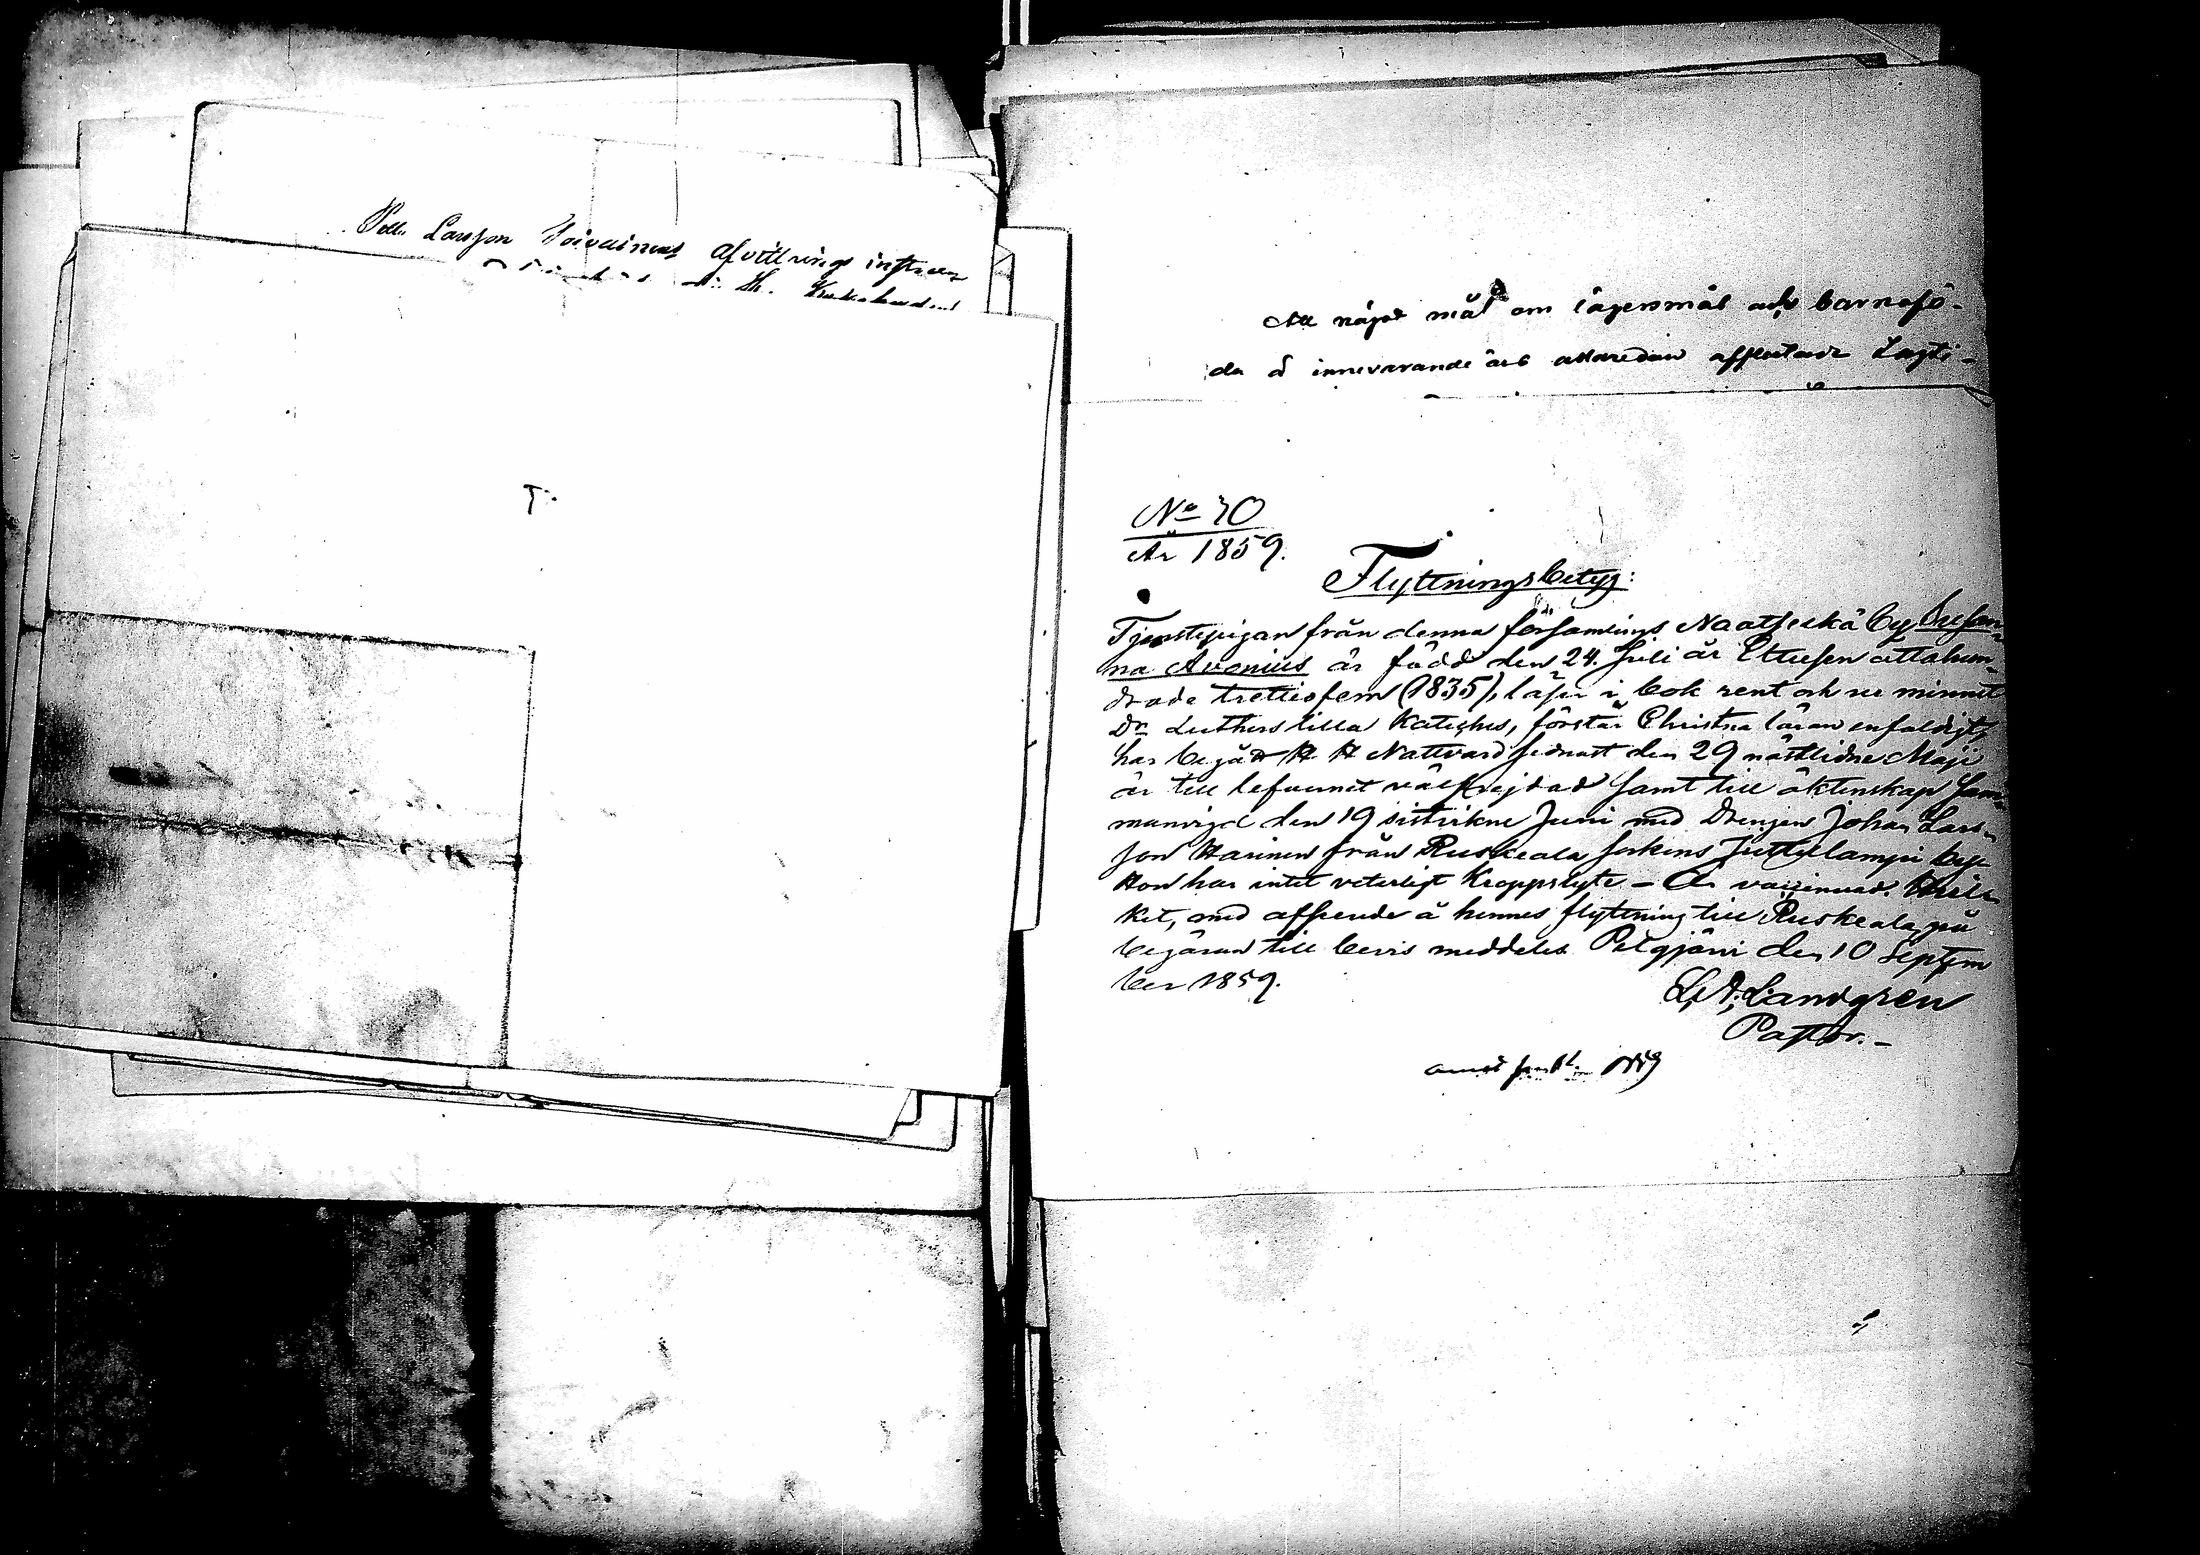 Pell. Larsson Toivainens afvittrings instrum
Att något mål om lägersmål och barnafö-
da å innevarande års allaredan afslutade Lagti-
No 70
År 1859.
Flyttningsbetyg:
Tjenstepigan från denna församlings Naatselkä by Susan-
na Avonius är född den 24. Juli år Ettusen attahun-
drade trettiofem (1835), läser i bok rent och ur minnet
Dr Luthers lilla Kateches, förstår Christna läran enfaldigt,
har begått H H Nattvard sednast den 29 nästlidne Maji
är till lefvernet välfrejdad samt till äktenskap sam-
manvigd den 19 sistvikne Juni med Drengen Johan Lars-
son Harinen från Ruskeala Sokens by
Hon har intet veterligt Kroppslyte – Är vaccinerad. Hvil-
ket, med afseende å hennes flyttning till Ruskeala, på
begäran till bevis meddelas. Pelgjärvi den 10 Septem
ber 1859.
Landgren
Pastor.-